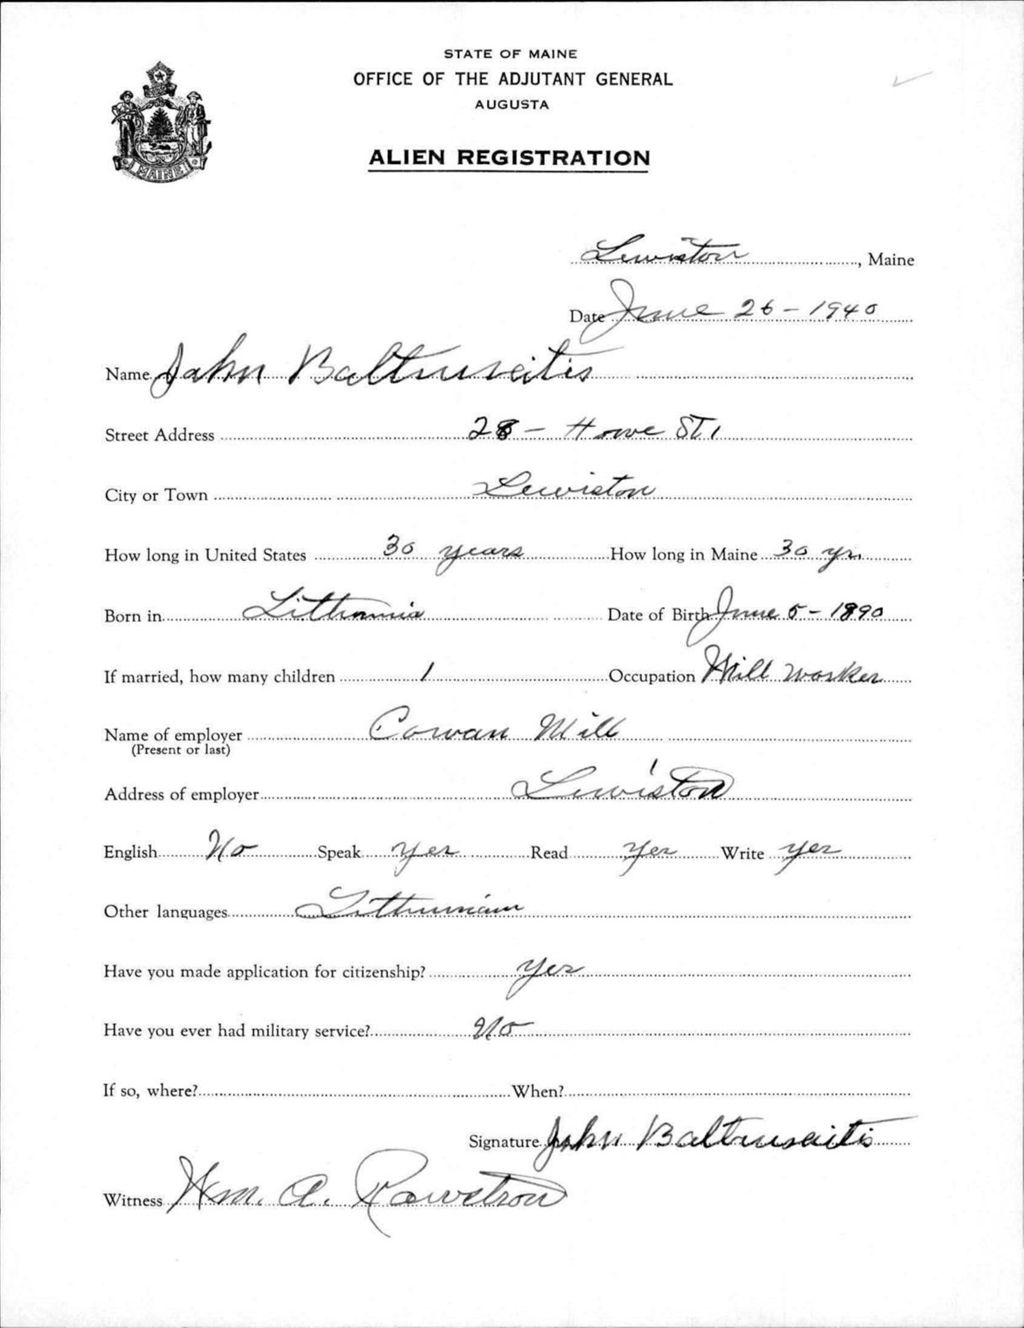 STATE OF MAINE
OFFICE OF THE ADJUTANT GENERAL
AUGUSTA
ALIEN REGISTRATION
MAINE
Lewiston, Maine
Date June 26 - 1940
Name John Baltruseitis
Street Address 28 - Howe St.
City or Town Lewiston
How long in United States 30 years How long in Maine 30 yr.
Born in Lithunnia Date of Birth June 5 - 1890
If married, how many children 1 Occupation Mill worker
Name of employer Cowan Mill
(Present or last)
Address of employer Lewiston
English No Speak Yes Read Yes Write Yes
Other languages Lithunian
Have you made application for citizenship? Yes
Have you ever had military service? No
If so, where? When?
Signature John Baltrusaitis
Witness Wm. A. Rawstron